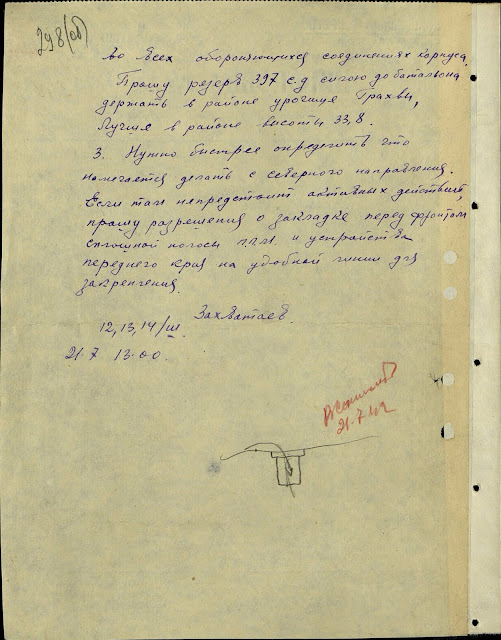 298(об)
во всех обороняющихся соединениях корпуса.
Прошу резерв 397 с.д силою до батальона
держать в районе урочища Грахвы,
Лучше в районе высоты 33,8.
3. Нужно быстрее определить что
намечается делать с северного направления.
Если там непредстоит активных действий,
прошу разрешения о закладке перед фронтом
сплошной полосы п.п.м. и устройства
переднего края на удобной линии для
закрепления.
Захватаев.
12,13,14/III
21.7 13.00.
21.7.42